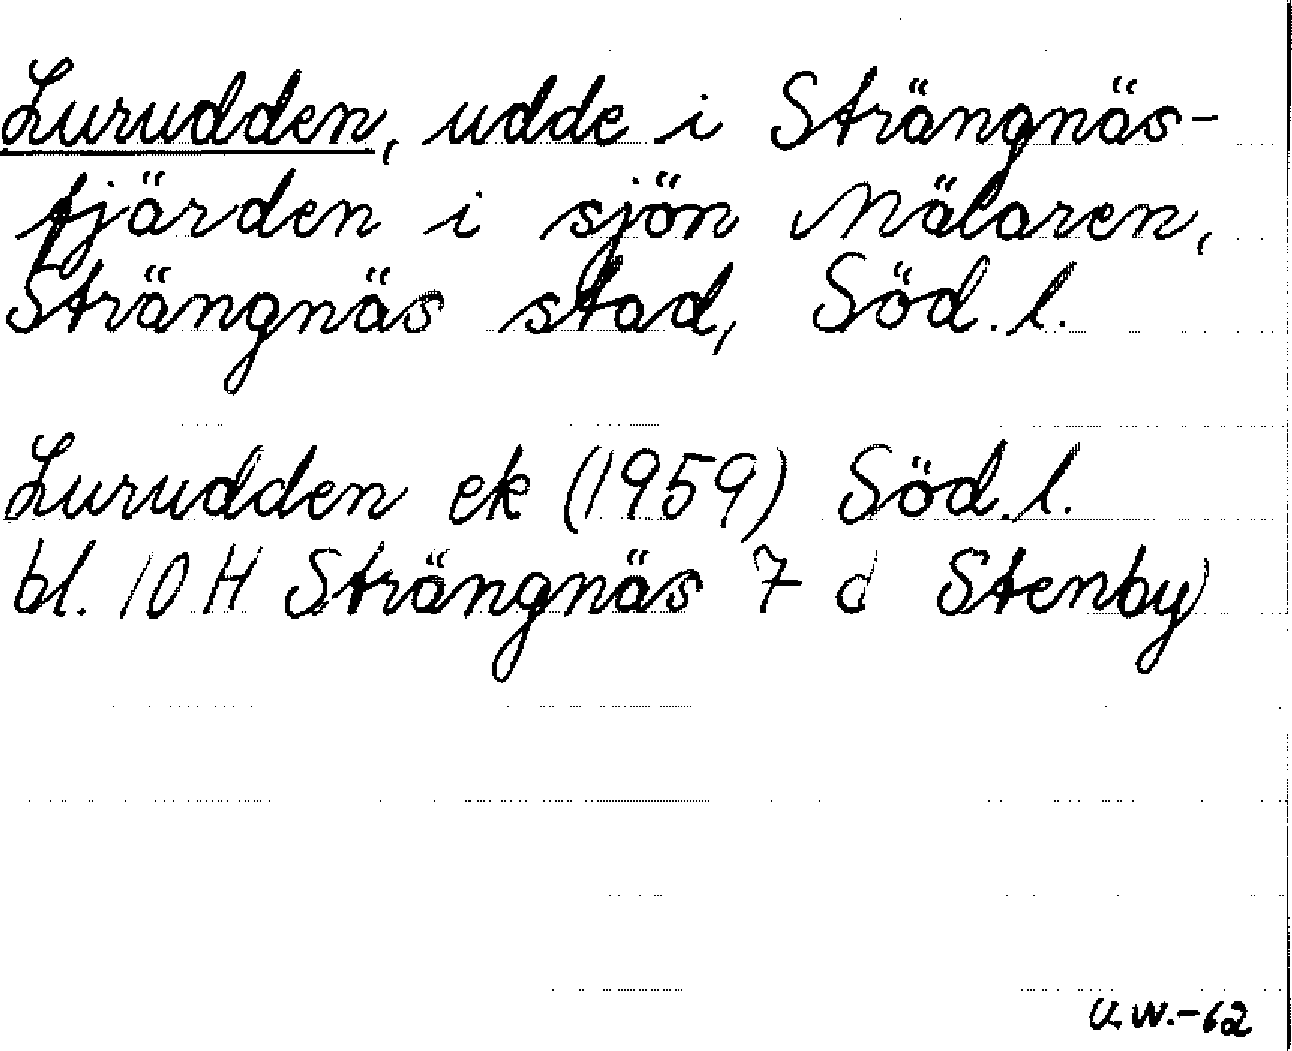 Lurudden, udde i Strängnäs-
fjärden i sjön Mälaren,
Strängnäs stad, Söd. l.
Lurudden ek (1959) Söd. l.
bl. 10 H Strängnäs 7 d Stenby
U.W.-62